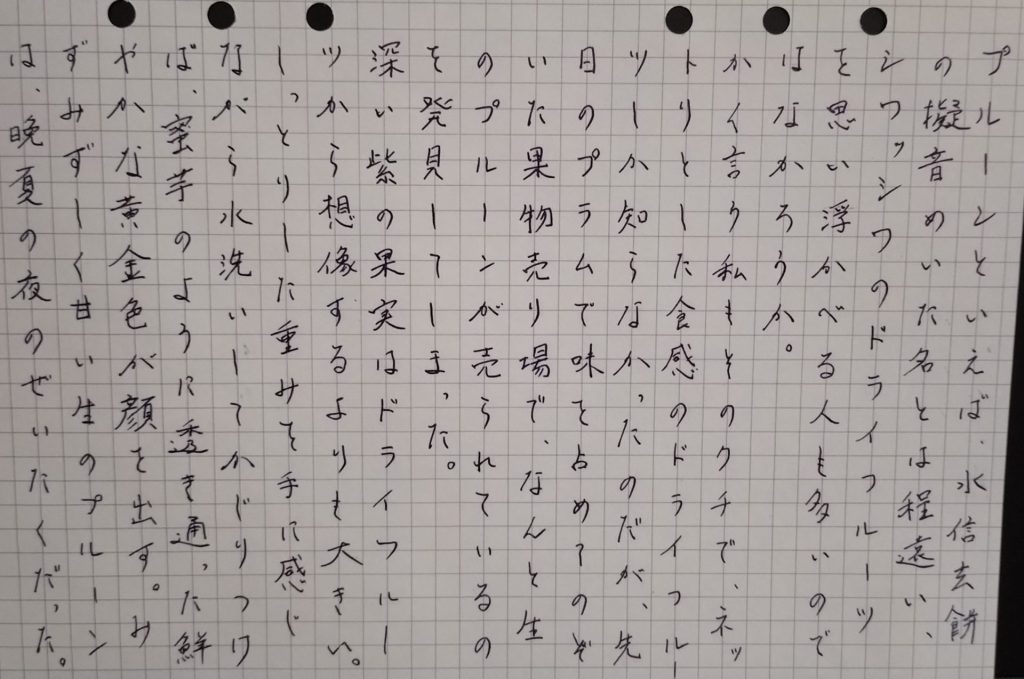 プルーンといえば、水信玄餅
の擬音めいた名とは程遠い、
シワッシワのドライフルーツ
を思い浮かべる人も多いので
はなかろうか。
かく言う私もそのクチで、ネッ
トリとした食感のドライフルー
ツしか知らなかったのだが、先
日のプラムで味を占めてのぞ
いた果物売り場で、なんと生
のプルーンが売られているの
を発見してしまった。
深い紫の果実はドライフルー
ツから想像するよりも大きい。
しっとりした重みを手に感じ
ながら水洗いしてかじりつけ
ば、蜜芋のように透き通った鮮
やかな黄金色が顔を出す。み
ずみずしく甘い生のプルーン
は、晩夏の夜のぜいたくだった。